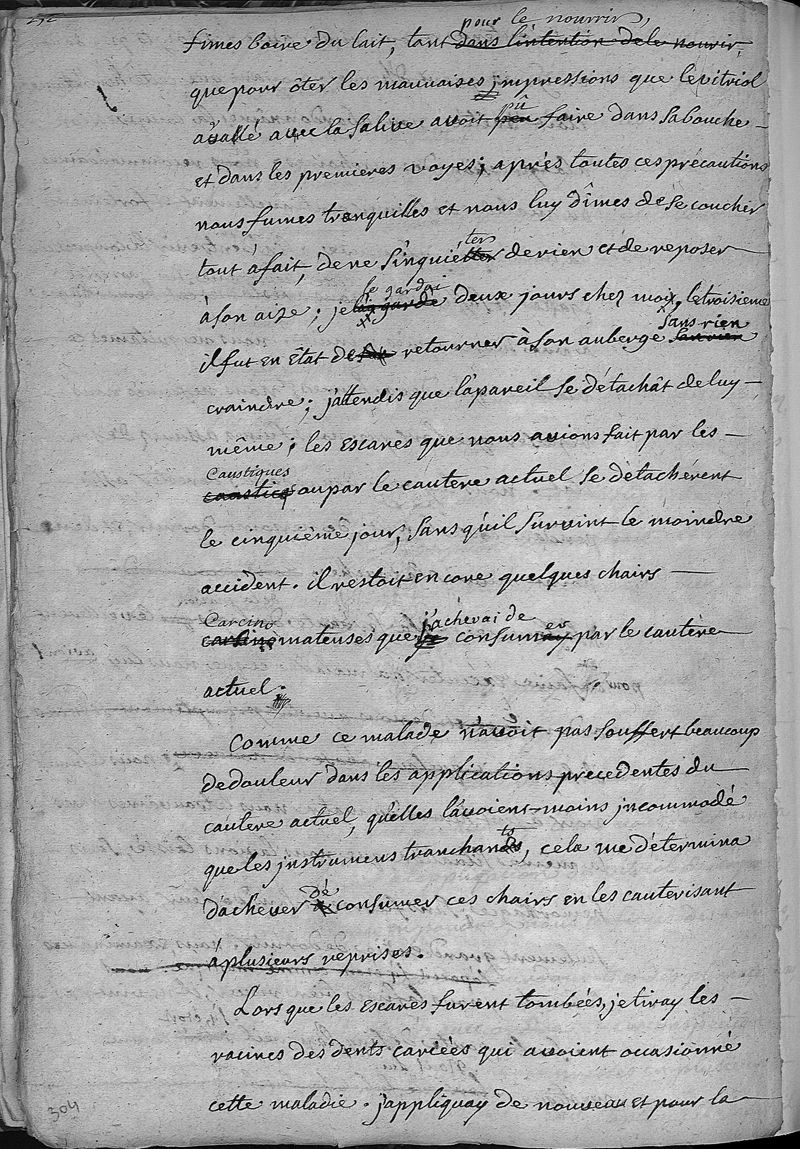 252
pour le nourrir,
fimes boire du lait, tant dans l'intention de le nourir,
que pour ôter les mauvaises impressions que le vitriol
avallé avec la salive avoit pû faire dans sa bouche
et dans les premieres voyes; après toutes ces précautions
nous fumes tranquilles et nous luy dîmes de se coucher
tout à fait, de ne s'inquiéter de rien et de reposer
le gardai
à son aize; je le garde deux jours chez moi, le troisieme
sans rien
il fut en état de retourner à son auberge sans rien
craindre; j'attendis que l'apareil se détachât de luy
même; les escares que nous avions fait par les
Caustiques
caasticq ou par le cautere actuel se détachérent
le cinquiéme jour, sans qu'il survint le moindre
accident. il restoit encore quelques chairs
Carcino j'achevai de
carsinomateuses que je consumer par le cautère
actuel.
Comme ce malade n'avoit pas souffert beaucoup
de douleur dans les applications precedentes du
cautere actuel, qu'elles l'avoient moins jncommodé
que les jnstrumens tranchants, cela me détermina
d'achever de consumer ces chairs en les cauterisant
a plusieurs reprises.
Lors que les escares furent tombées, je tiray les
racines des dents cariées qui avoient occasionné
cette maladie. j'appliquay de nouveau et pour la
304